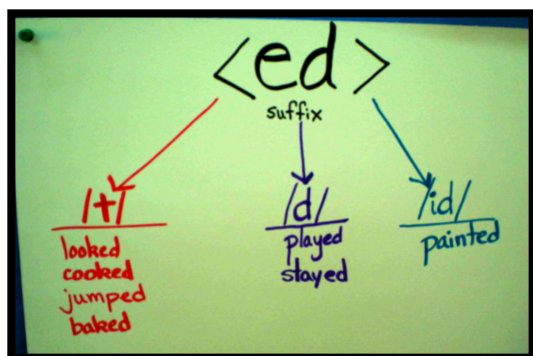 <ed>
suffix
/t/
looked
cooked
jumped
baked
/d/
played
stayed
/id/
painted